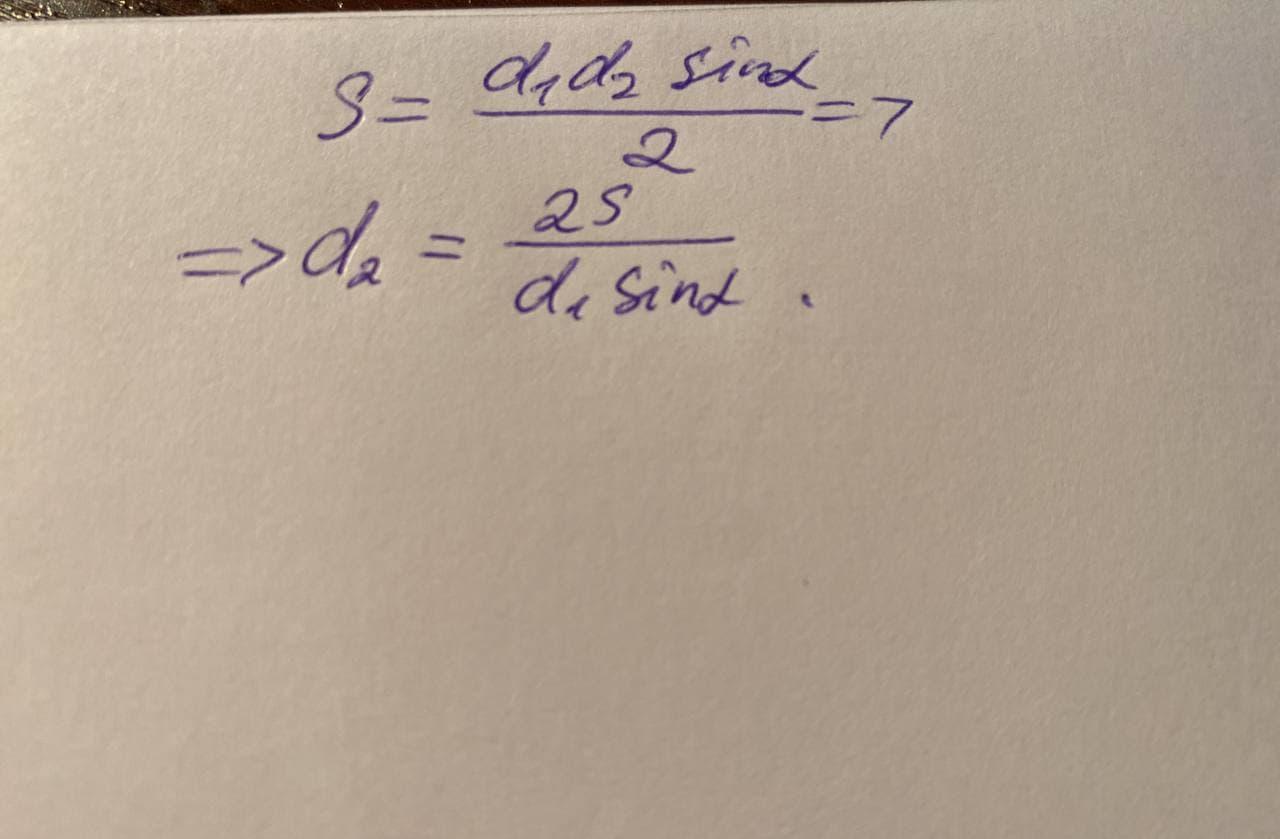 S = \frac{d_1 d_2 \sin\alpha}{2} =>
=> d_2 = \frac{2S}{d_1 \sin\alpha} .